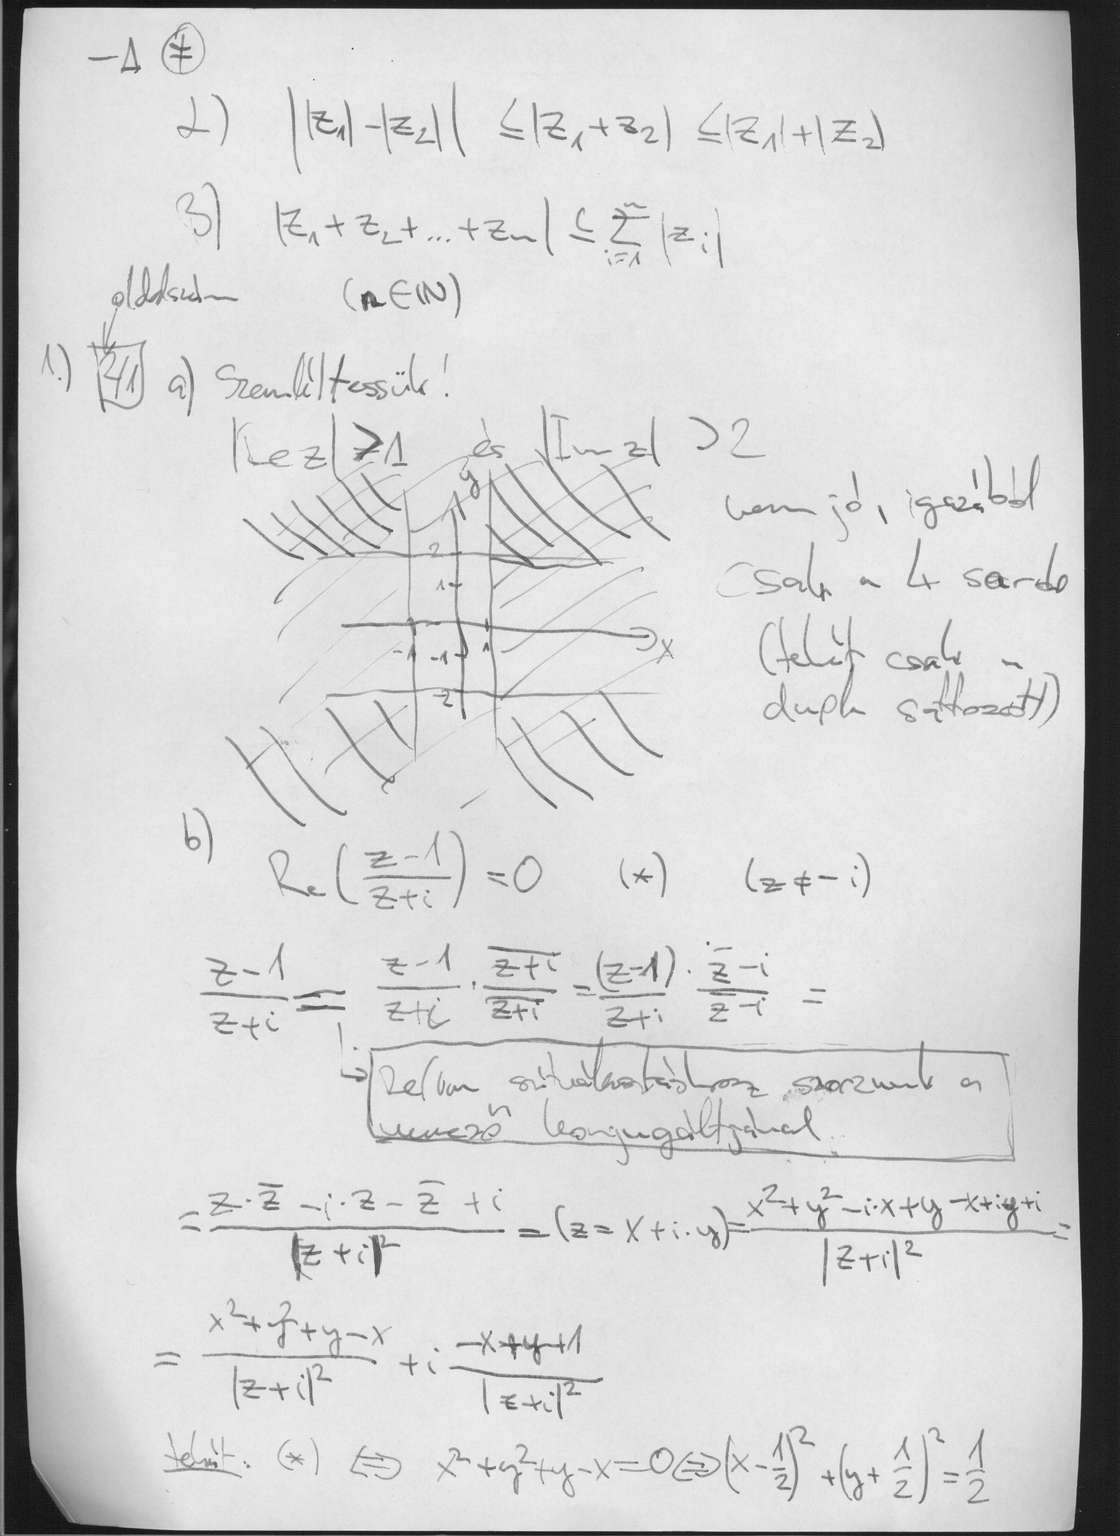 -Δ ≠
2) ||z₁|-|z₂|| ≤ |z₁+z₂| ≤ |z₁|+|z₂|
3) |z₁+z₂+...+zₙ| ≤ Σ_{i=1}^{n} |zᵢ|
oldalszám (n∈ℕ)
1.) 41 a) Szemléltessük!
|Re z| ≥ 1 és |Im z| > 2
y
2
1
-1 -1 1 x
-2
nem jó, igazából
csak a 4 sarok
(tehát csak a
dupla satírozott)
b)
Re((z-1)/(z+i)) = 0 (*) (z ≠ -i)
(z-1)/(z+i) = (z-1)/(z+i) · \overline{z+i}/\overline{z+i} = (z-1)/(z+i) · (z̄-i)/(z̄-i) =
szorzunk a
nevező konjugáltjával.
= (z·z̄ - i·z - z̄ + i)/|z+i|² = (z = x+i·y) = (x²+y²-i·x+y-x+iy+i)/|z+i|² =
= (x²+y²+y-x)/|z+i|² + i (-x+y+1)/|z+i|²
tehát: (*) ⇔ x²+y²+y-x=0 ⇔ (x-1/2)² + (y+1/2)² = 1/2